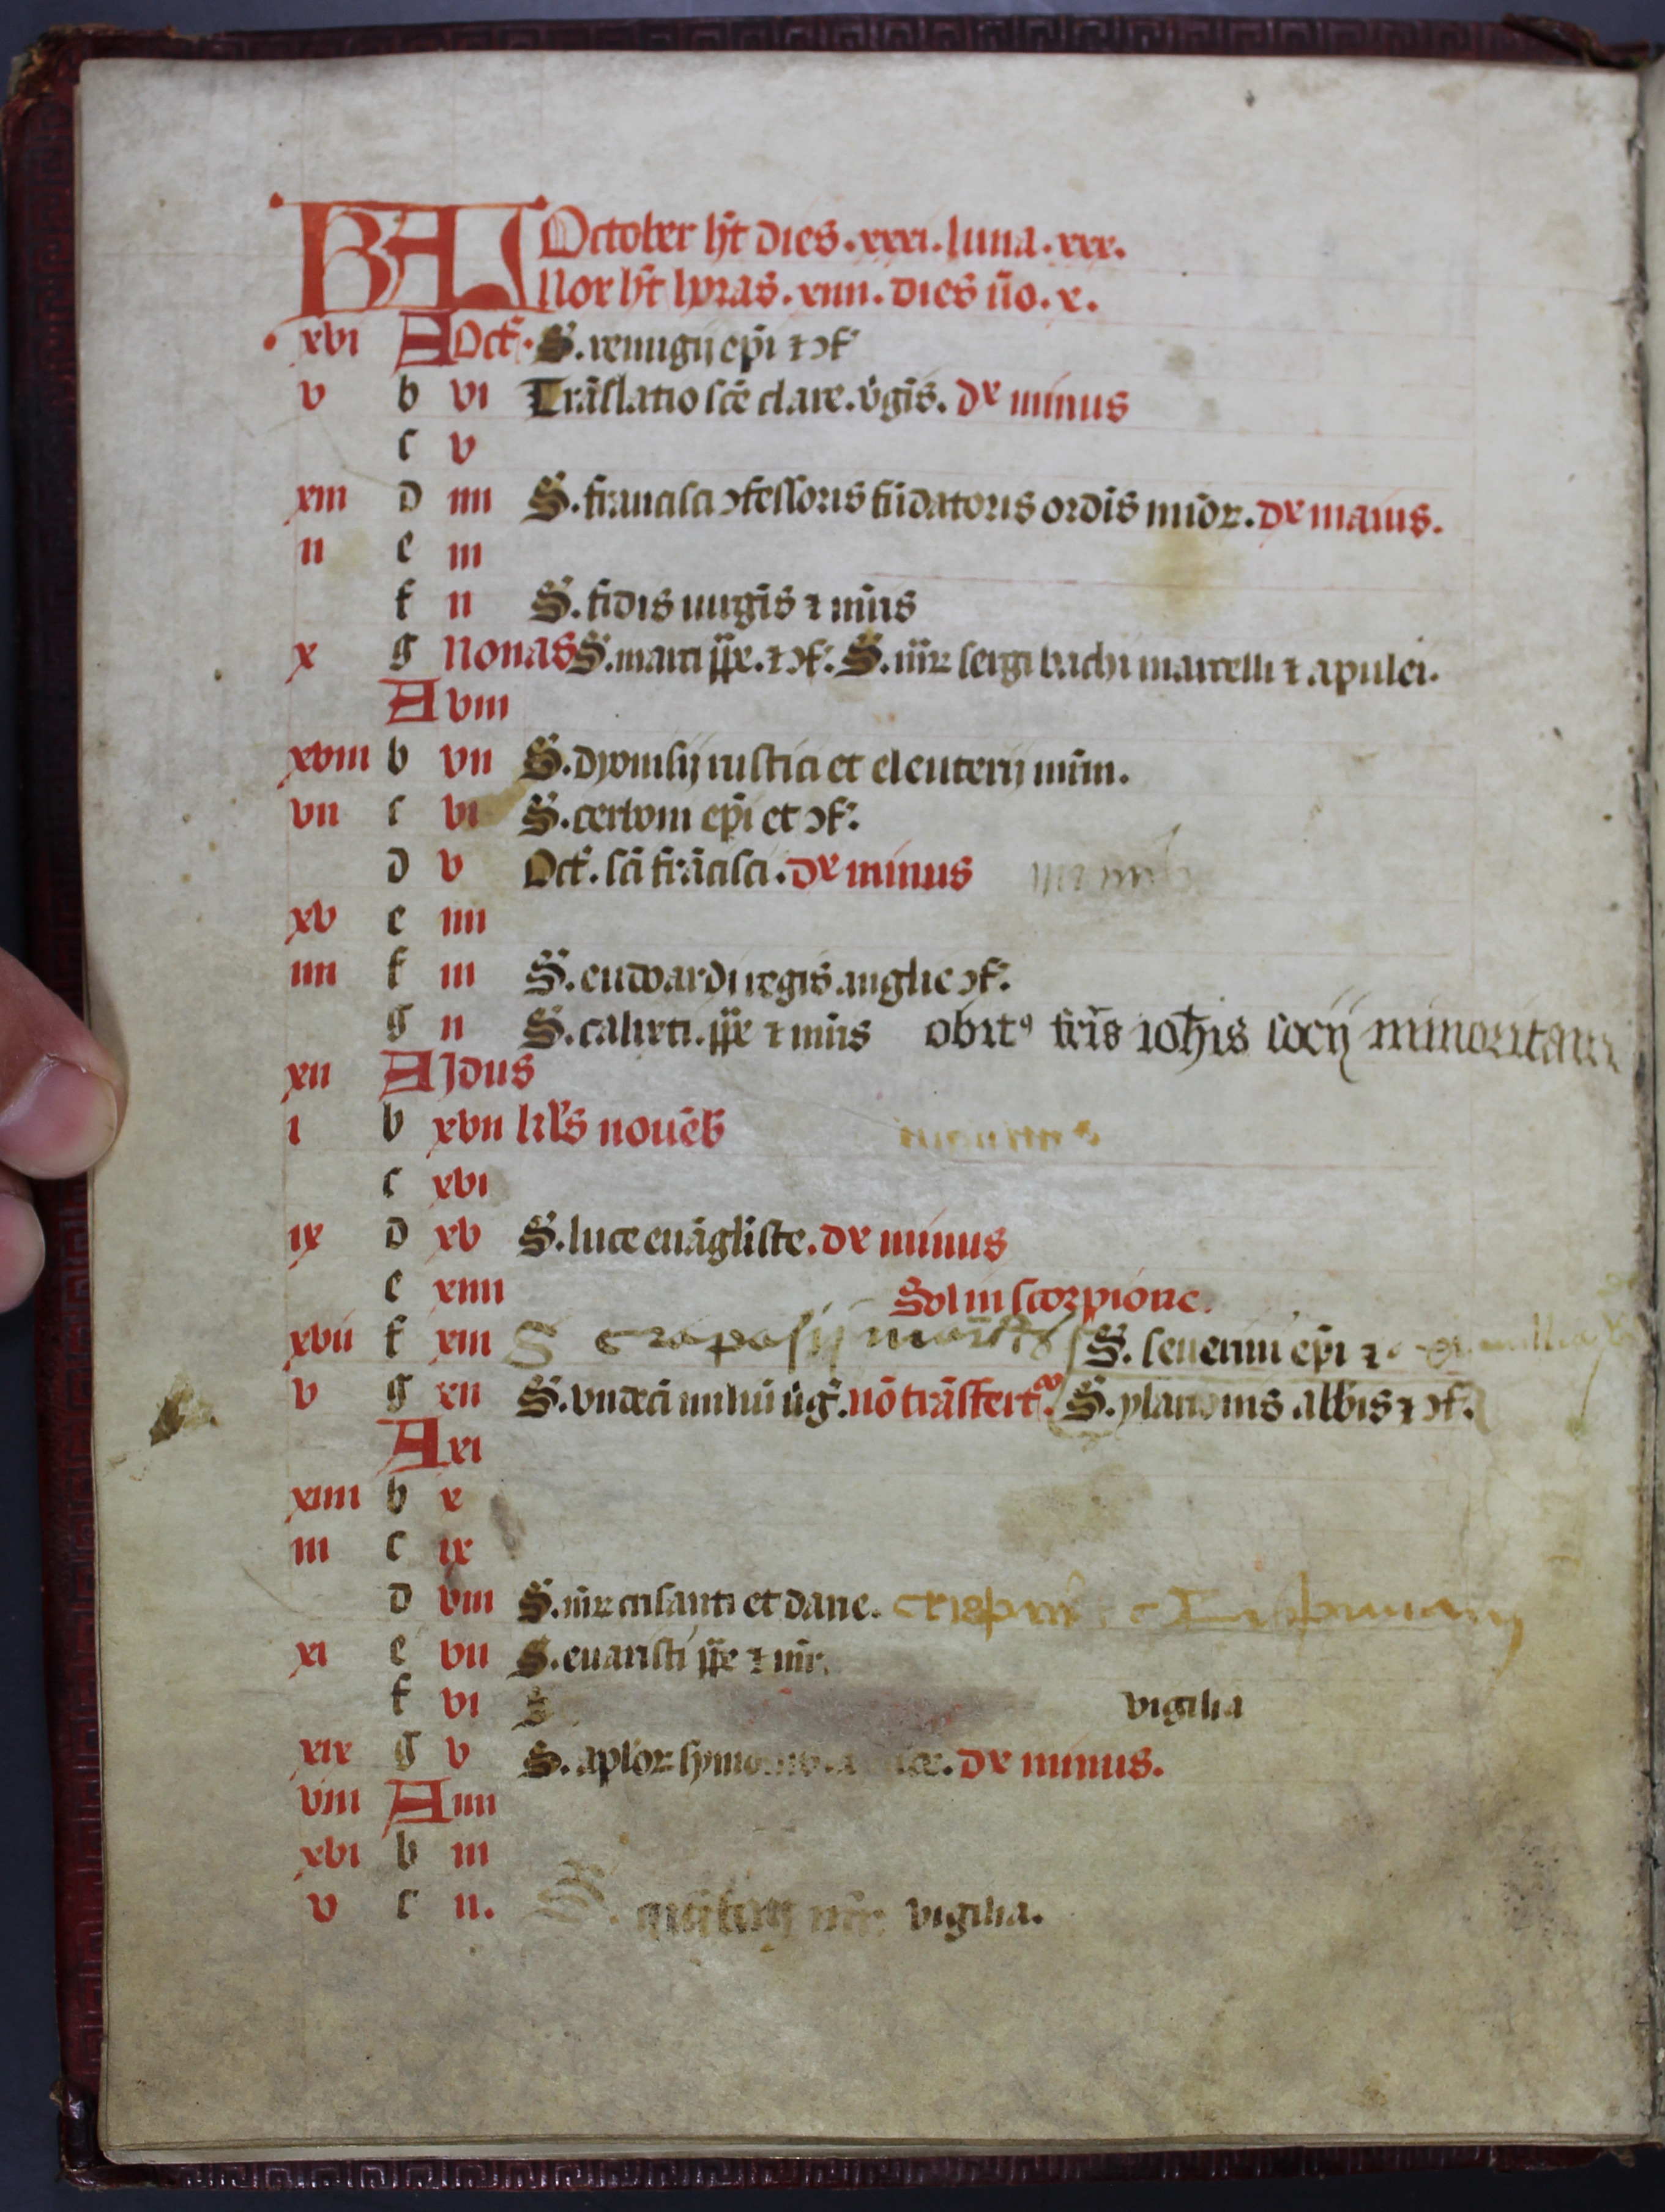 KAL October h̄t dies. xxxi. luna. xxx.
Nox h̄t horas. xiiii. dies ūo. x.
xvi A Oct̄. S. remigij ep̄i ⁊ ɔf̄
v b vi Trāslatio sc̄e clare. v̄gīs. dx minus
c v
xiii d iiii S. francisci ɔfessoris fūdatoris ordīs mīoꝝ. dx maius.
ii e iii
f ii S. fidis uirgīs ⁊ mr̄is
x g Nonas S. marci pp̄e. ⁊ ɔf̄. S. mr̄ꝝ sergi bachi marcelli ⁊ apulei.
A viii
xviii b vii S. dyonisij rustici et eleuterij mr̄m.
vii c vi S. cerboni ep̄i et ɔf̄.
d v Oct̄. sc̄i frācisci. dx minus
xv e iiii
iiii f iii S. eudwardi regis anglie ɔf̄.
g ii S. calixti. pp̄e ⁊ mr̄is obitꝰ fr̄is ioh̄is socij minoritani
xii A Idus
i b xvii kl̄s nouēb̄
c xvi
ix d xv S. luce euāgl̄iste. dx minus
e xiiii Sol in scorpione.
xvii f xiii S S. seuerini ep̄i ⁊
v g xii S. vndeci miliū v̄ḡ. nō trāsfert᷑. S. ylarionis abb̄is ⁊ ɔf̄.
A xi
xiiii b x
iii c ix
d viii S. mr̄ꝝ crisanti et darie. crispini
xi e vii S. euaristi pp̄e ⁊ mr̄.
f vi S vigilia
xix g v S. apl̄oꝝ symonis dx minus.
viii A iiii
xvi b iii
v c ii. S. quītini mr̄. vigilia.